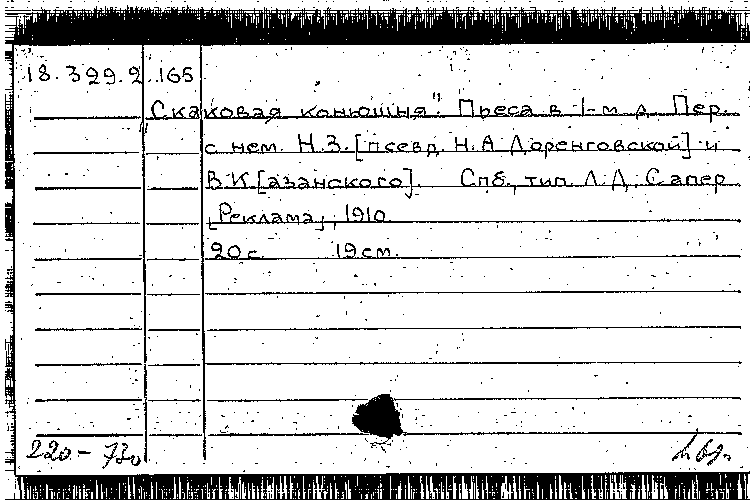 18.399.2.165
„Скаковая конюшня". Пьеса в 1-м д. Пер.
с нем. Н.З. [псевд. Н.А. Доренговской] и
В.К[азанского]. Спб., тип. Л.Д. Сапер
„Реклама", 1910
20 с. 19 см.
220-73о